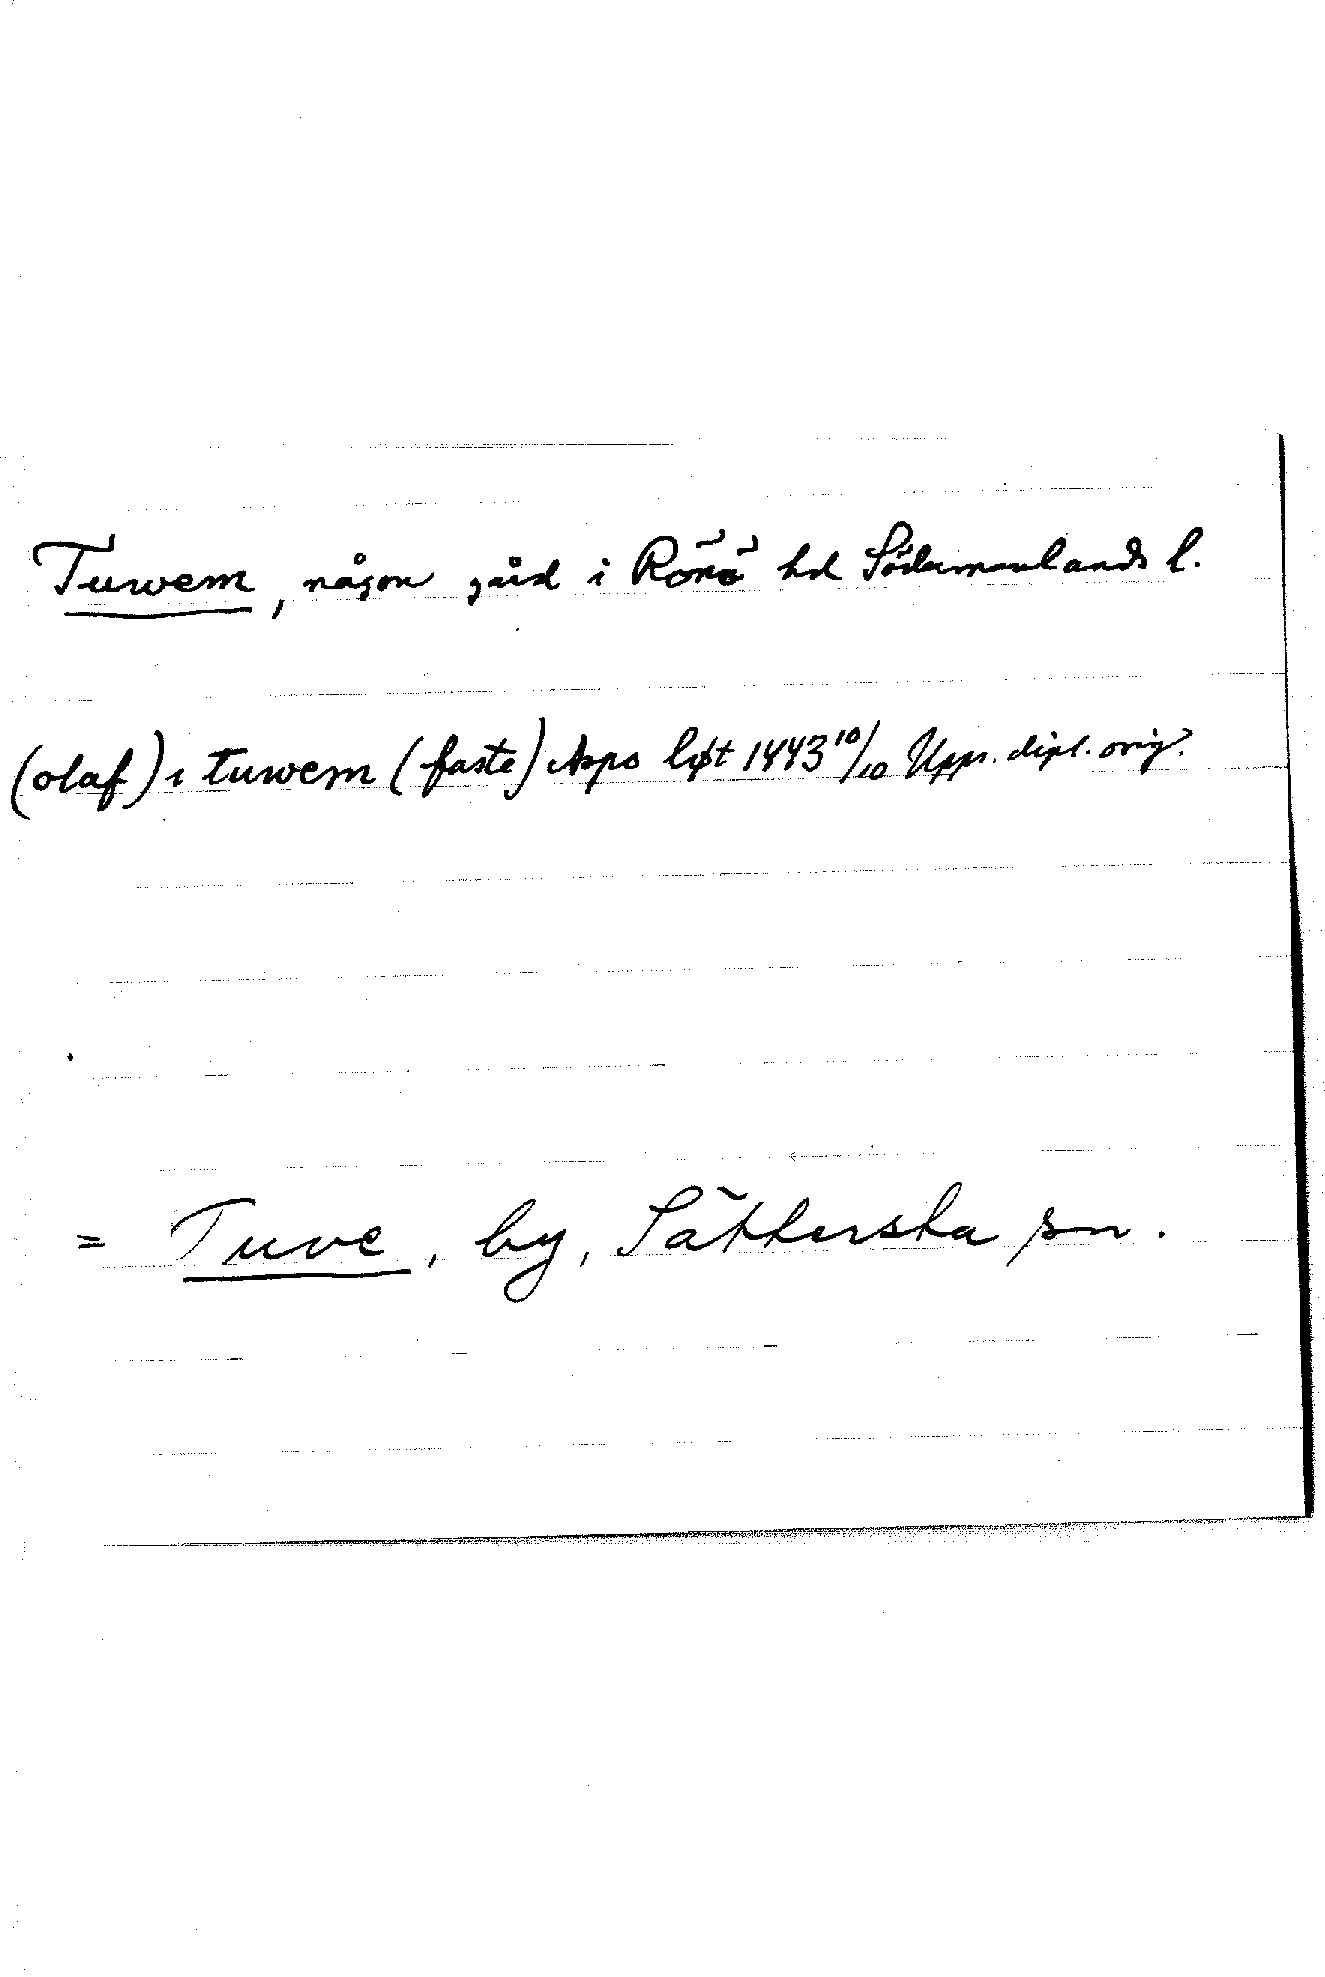 Tuwem, någon gård i Rönö hd Södermanlands l.
(olaf) i tuwem (faste) Aspo løt 1443 10/10 Upps. dipl. orig.
= Tuve, by, Sättersta sn.